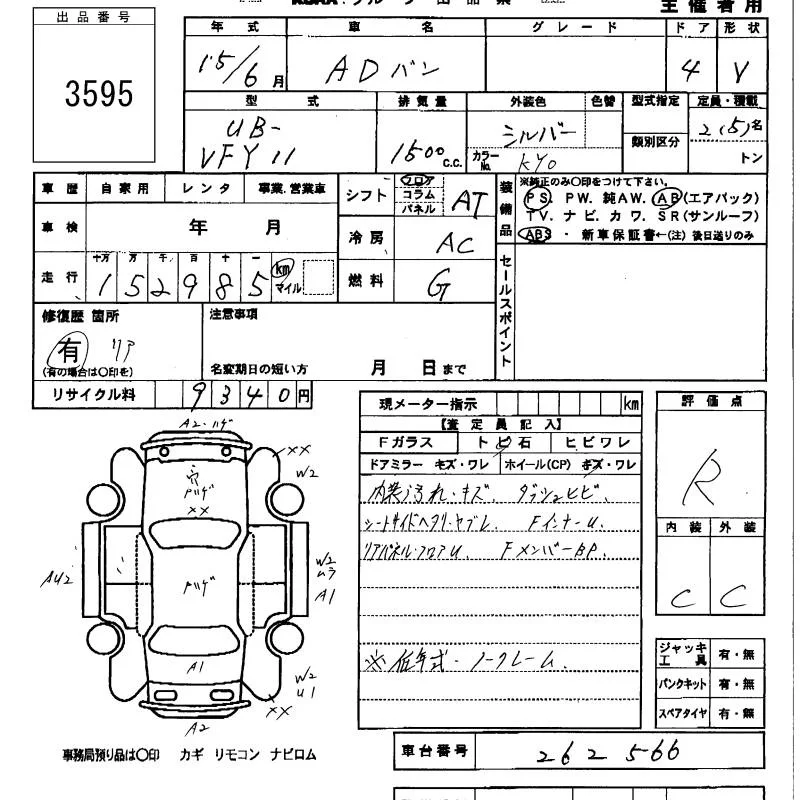 出品番号
3595
主催者用
年式 車名 グレード ドア 形状
15/6月 ADバン 4 V
型式 排気量 外装色 色替 型式指定 定員・積載
類別区分
UB-
VFY11 1500 C.C. シルバー 2(5)名
カラーNo. KY0 トン
車歴 自家用 レンタ 事業.営業車
シフト フロア コラム パネル AT
装備品 ※純正のみ〇印をつけて下さい。
PS. PW. 純AW. AB(エアバック)
TV. ナビ. カワ. SR(サンルーフ)
ABS ・ 新車保証書←(注) 後日送りのみ
車検 年 月
冷房 AC
走行 十万 万 千 百 十 一
152985 km マイル
燃料 G
セールスポイント
修復歴 箇所
有 リア
(有の場合は〇印を)
注意事項
名変期日の短い方 月 日まで
リサイクル料 9340円
現メーター指示 km
【査定員記入】
Fガラス トビ石 ヒビワレ
ドアミラー キズ・ワレ ホイール(CP) キズ・ワレ
内装汚れ・キズ ダッシュヒビ
シートサイドヘタリ・ヤブレ Fインナーu
リアパネル・フロアu FメンバーBP
※低年式・ノークレーム
評価点
R
内装 外装
C C
ジャッキ工具 有・無
パンクキット 有・無
スペアタイヤ 有・無
A2・ハゲ
XX
W2
穴
ハゲ
XX
AU2
ハゲ
W2
ムラ
A1
A1
W2
U1
XX
A2
事務局預り品は〇印 カギ リモコン ナビロム
車台番号 262566